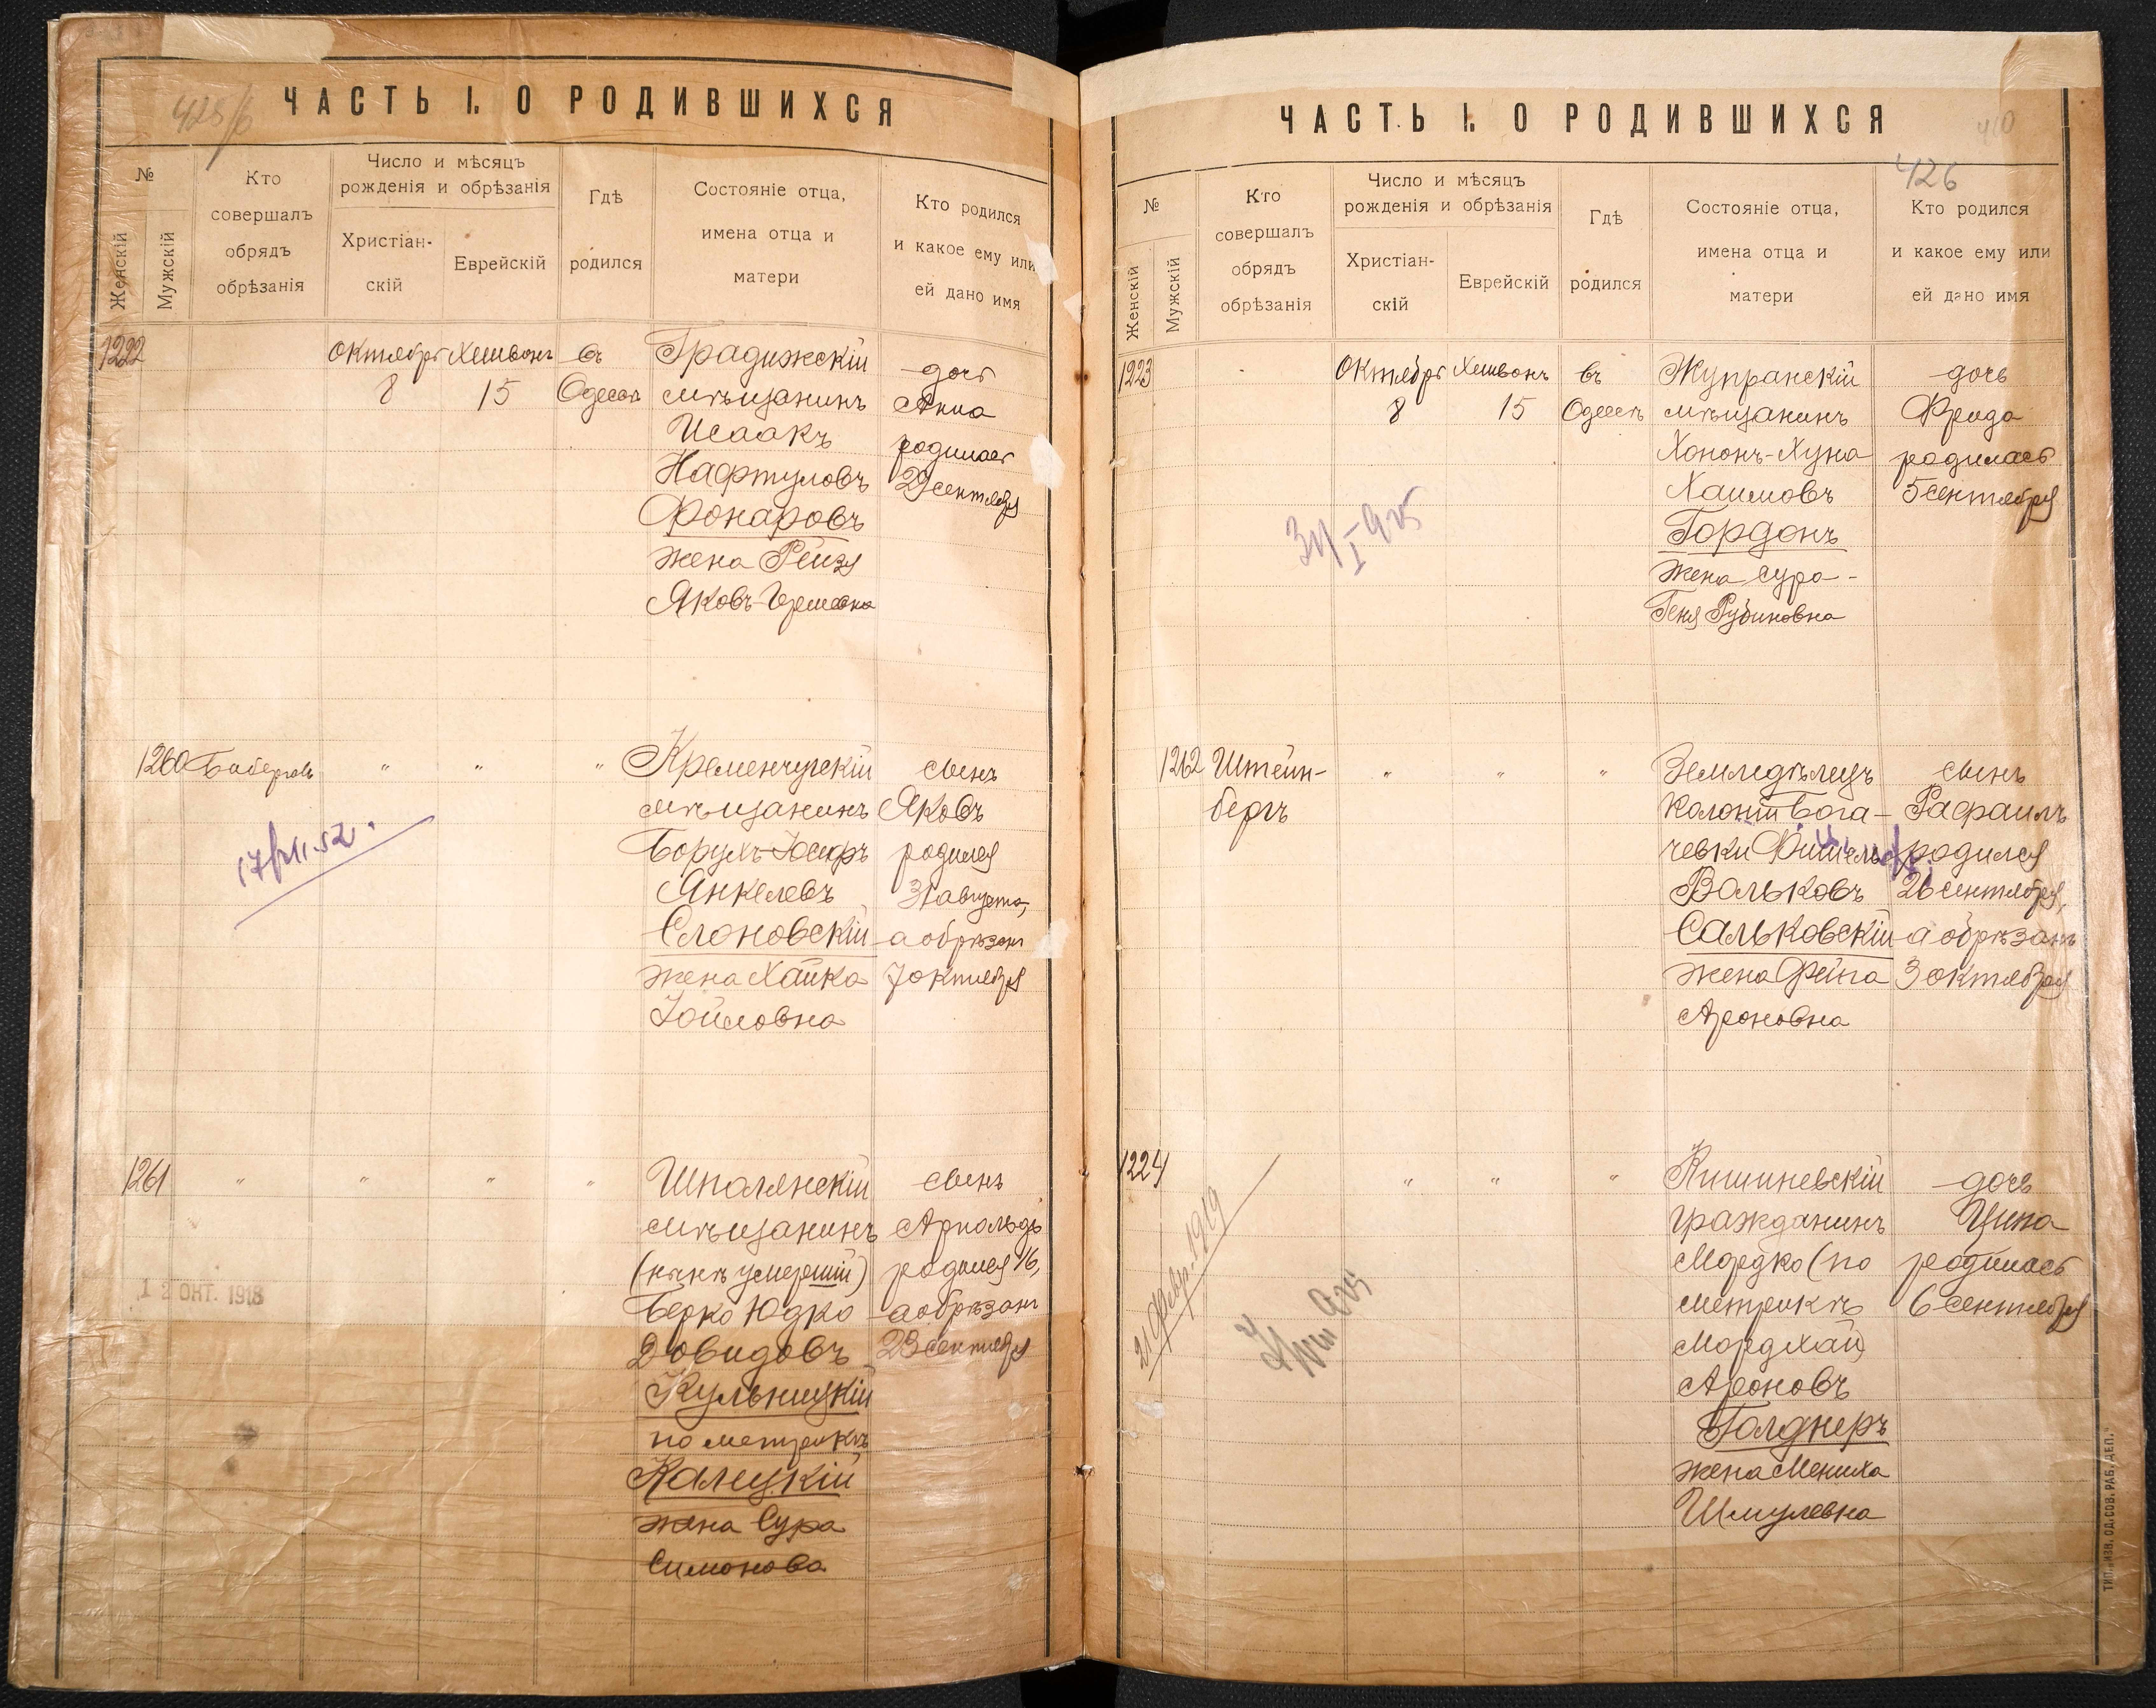 425/б
ЧАСТЬ I. О РОДИВШИХСЯ
№
Женскій
Мужскій
Кто
совершалъ
обрядъ
обрѣзанія
Число и мѣсяцъ
рожденія и обрѣзанія
Христіан-
скій
Еврейскій
Гдѣ
родился
Состояніе отца,
имена отца и
матери
Кто родился
и какое ему или
ей дано имя
1222
Октября
8
Хешвонъ
15
въ
Одессѣ
Градижскій
мѣщанинъ
Исаакъ
Нафтуловъ
Фонаровъ
жена Рейзя
Яковъ-Гершовна
дочь
Анна
родилась
29 сентября
1260
" " "
Кременчугскій
мѣщанинъ
Борухъ-Іосифъ
Янкелевъ
Слоновскій
жена Хайка
Іойловна
сынъ
Яковъ
родился
31 августа,
а обрѣзанъ
7 октября
1261
" " " "
Шполянскій
мѣщанинъ
(нынѣ умершій)
Берко Юдко
Довидовъ
Кульницкій
по метрикѣ
Калецкій
жена Сура
Симонова
сынъ
Арнольдъ
родился 16,
а обрѣзанъ
23 сентября
12 ОКТ. 1918
ЧАСТЬ I. О РОДИВШИХСЯ
410
426
№
Женскій
Мужскій
Кто
совершалъ
обрядъ
обрѣзанія
Число и мѣсяцъ
рожденія и обрѣзанія
Христіан-
скій
Еврейскій
Гдѣ
родился
Состояніе отца,
имена отца и
матери
Кто родился
и какое ему или
ей дано имя
1223
Октября
8
Хешвонъ
15
въ
Одессѣ
Жупранскій
мѣщанинъ
Хононъ-Хуна
Хаимовъ
Гордонъ
жена Сура-
Геня Рубиновна
дочь
Фрида
родилась
5 сентября
1262
Штейн-
бергъ
" " "
Земледѣлецъ
колоніи Бога-
чевки Фишель
Вольковъ
Сальковскій
жена Фейга
Ароновна
сынъ
Рафаилъ
родился
26 сентября,
а обрѣзанъ
3 октября
1224
" " "
Кишиневскій
гражданинъ
Мордко (по
метрикѣ
Мордхай)
Ароновъ
Голднеръ
жена Мениха
Шмулевна
дочь
Цина
родилась
6 сентября
21 февр. 1919
ТИП. „ИЗВ. ОД. СОВ. РАБ. ДЕП.“